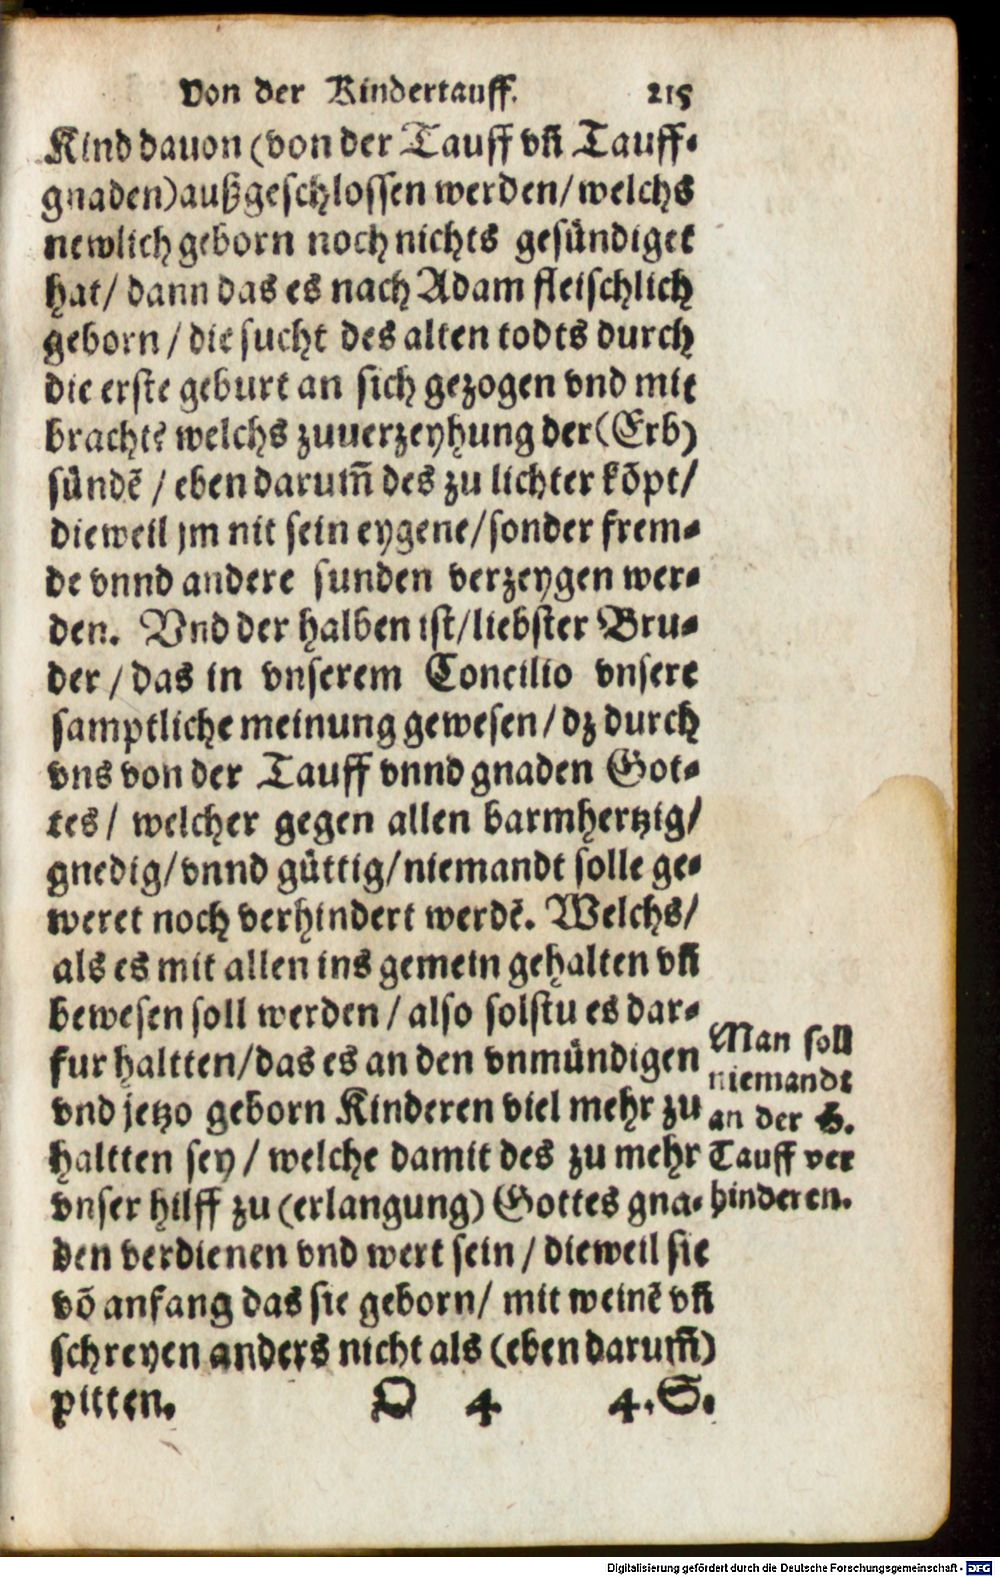 Von der Kindertauff. 215
Kind dauon (von der Tauff vñ Tauff-
gnaden) außgeschlossen werden/ welchs
newlich geborn noch nichts gesündiget
hat/ dann das es nach Adam fleischlich
geborn / die sucht des alten todts durch
die erste geburt an sich gezogen vnd mit
bracht? welchs zuuerzeyhung der (Erb)
sündẽ / eben darum̃ des zu lichter kõpt/
dieweil jm nit sein eygene/ sonder frem-
de vnnd andere sunden verzeygen wer-
den. Vnd der halben ist/ liebster Bru-
der / das in vnserem Concilio vnsere
samptliche meinung gewesen/ dz durch
vns von der Tauff vnnd gnaden Got-
tes/ welcher gegen allen barmhertzig/
gnedig/ vnnd güttig/ niemandt solle ge-
weret noch verhindert werdẽ. Welchs/
als es mit allen ins gemein gehalten vñ
bewesen soll werden / also solstu es dar-
fur haltten/ das es an den vnmündigen
vnd jetzo geborn Kinderen viel mehr zu
haltten sey / welche damit des zu mehr
vnser hilff zu (erlangung) Gottes gna-
den verdienen vnd wert sein / dieweil sie
võ anfang das sie geborn/ mit weinẽ vñ
schreyen anders nicht als (eben darum̃)
pitten. D 4 4. S.
Man soll
niemandt
an der H.
Tauff ver
hinderen.
Digitalisierung gefördert durch die Deutsche Forschungsgemeinschaft - DFG